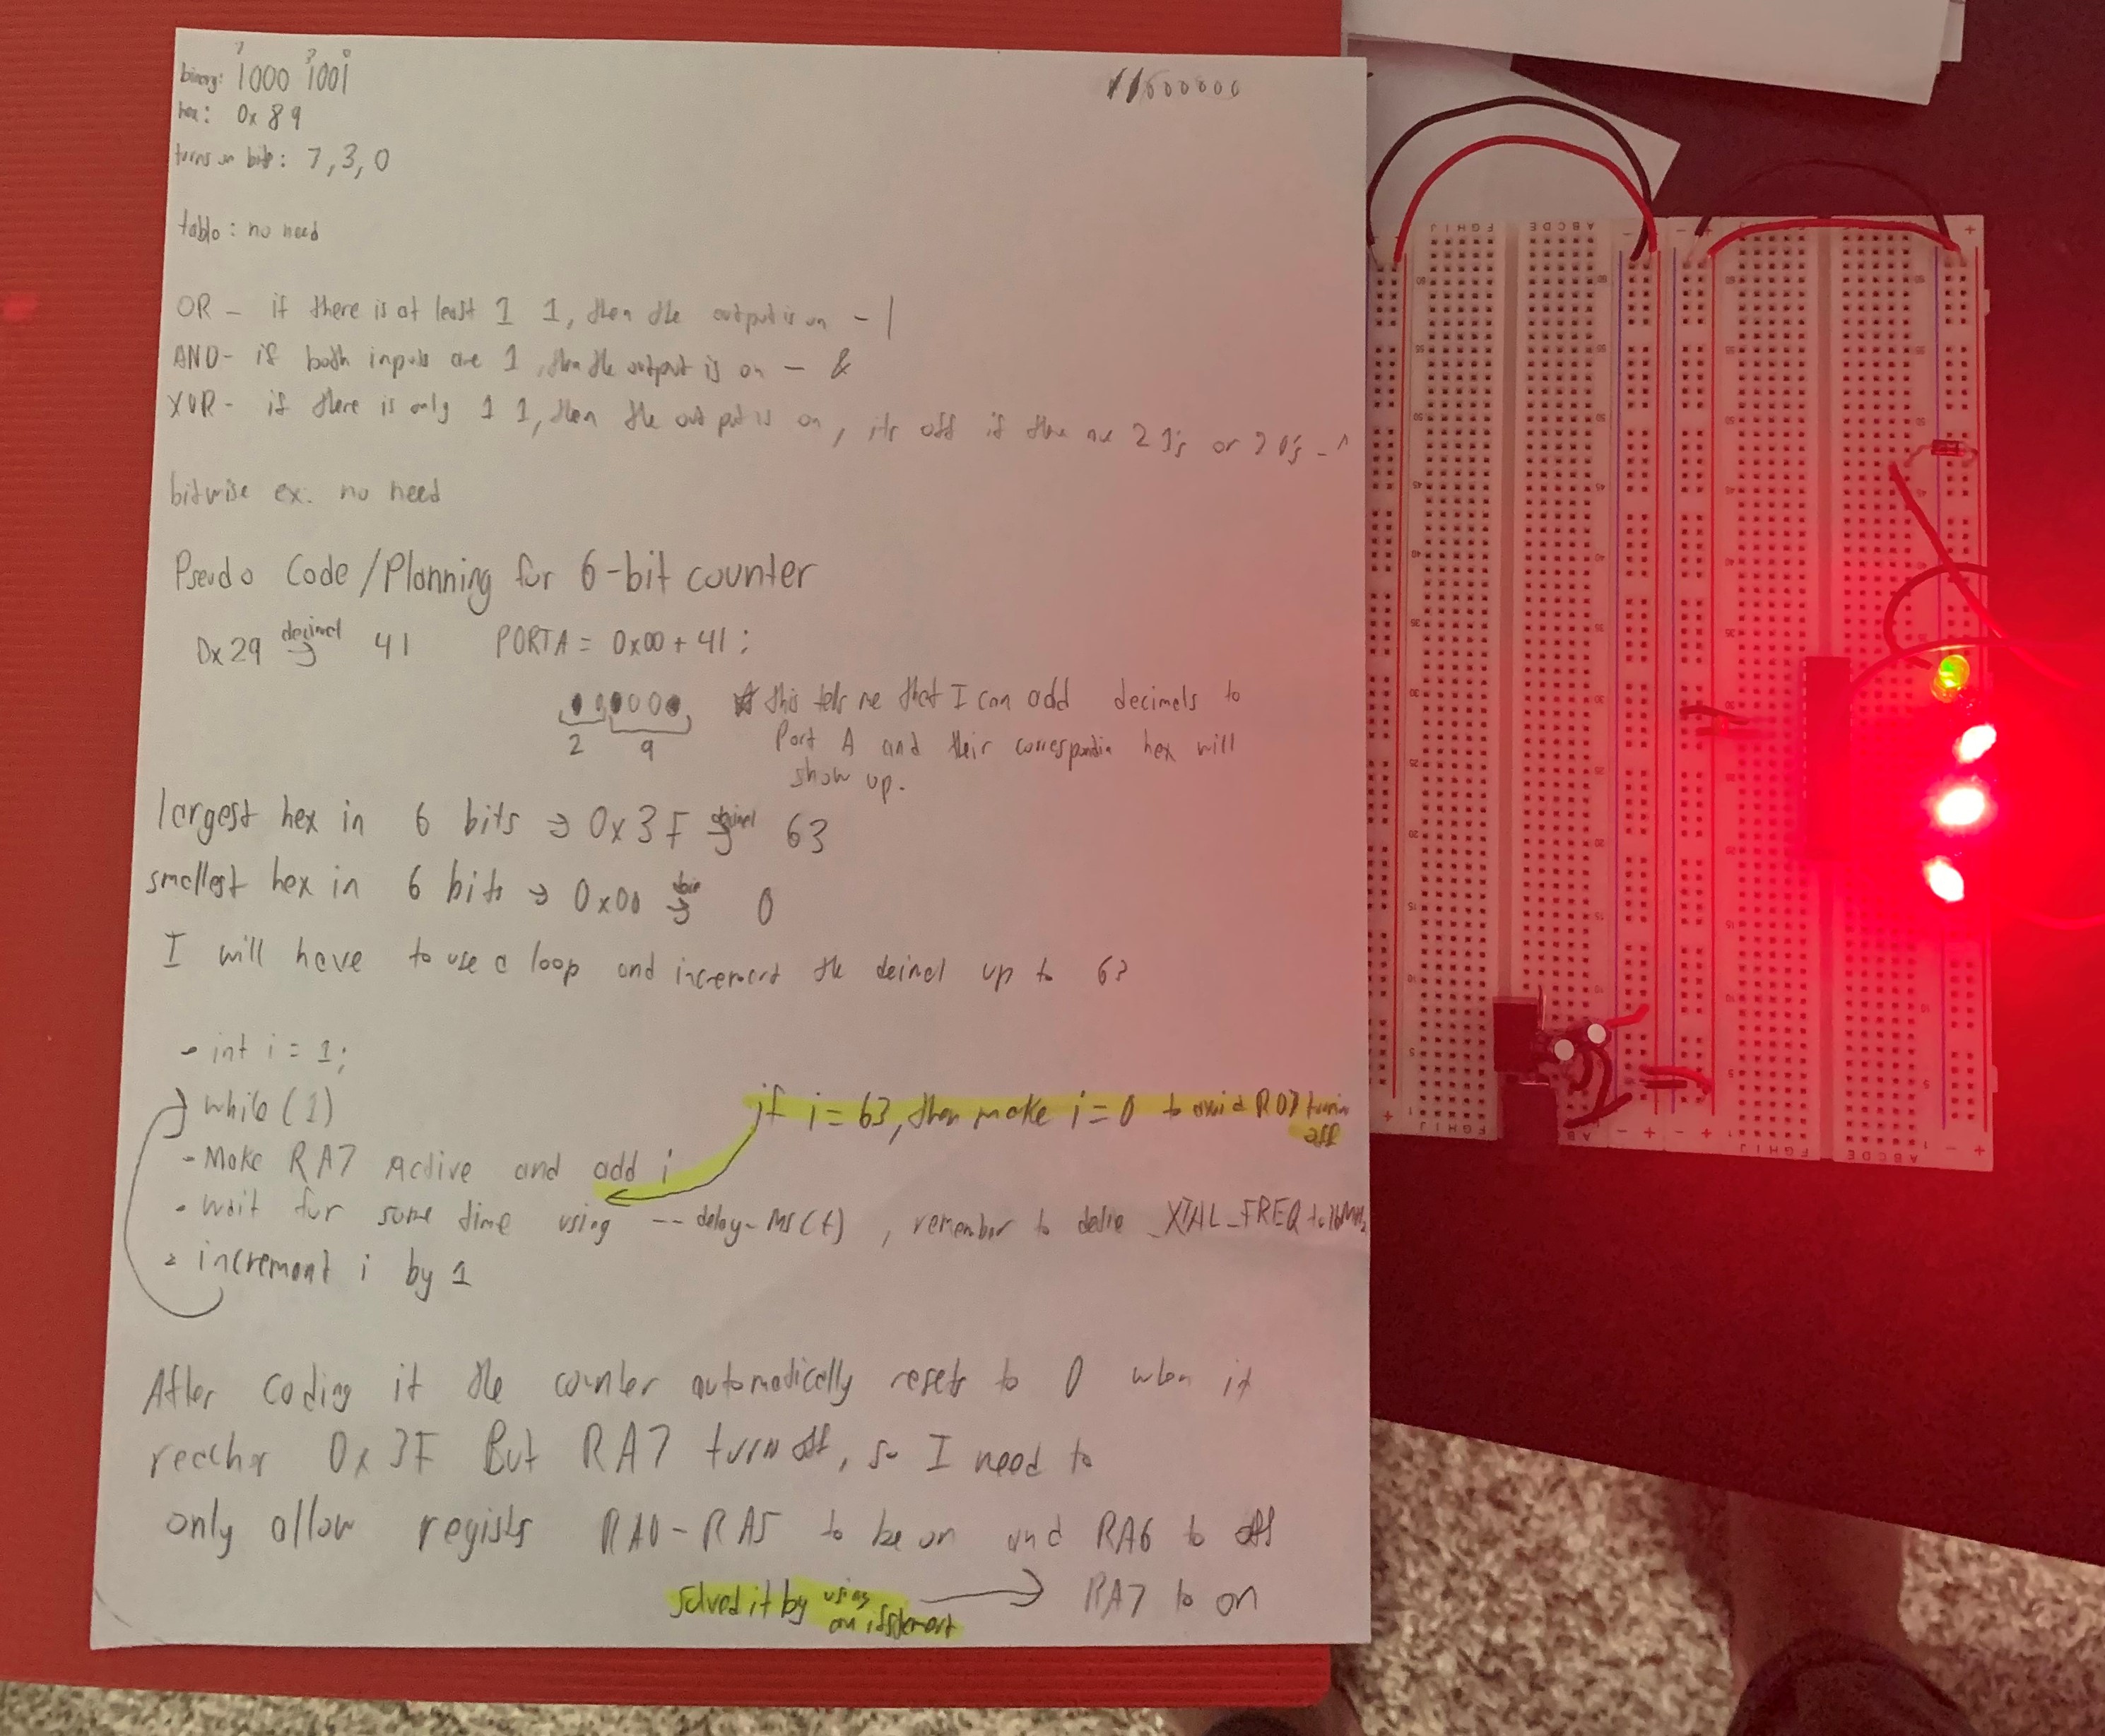 7 3 0
binary: 1000 1001
11000000
hex: 0x89
turns on bits: 7, 3, 0
table: no need
OR - if there is at least 1 1, then the output is on - |
AND - if both inputs are 1, then the output is on - &
XOR - if there is only 1 1, then the output is on, its off if there are 2 1's or 2 0's - ^
bitwise ex. no need
Pseudo Code/Planning for 6-bit counter
0x29 decimal → 41 PORTA = 0x00 + 41;
2 9
this tells me that I can add decimals to
Port A and their correspondin hex will
show up.
largest hex in 6 bits → 0x3F decimal → 63
smallest hex in 6 bits → 0x00 → 0
I will have to use a loop and increment the deimel up to 63
- int i = 1;
while (1)
if i = 63, then make i = 0 to avoid RA7 turnin
off
- Make RA7 Active and add i
- wait for some time using __delay_ms(t), remember to define _XTAL_FREQ to 16MHz
- increment i by 1
After coding it the counter automatically resets to 0 when it
reaches 0x3F But RA7 turn off, so I need to
only allow registers RA0 - RA5 to be on and RA6 to off
solved it by using an if statement → RA7 to on